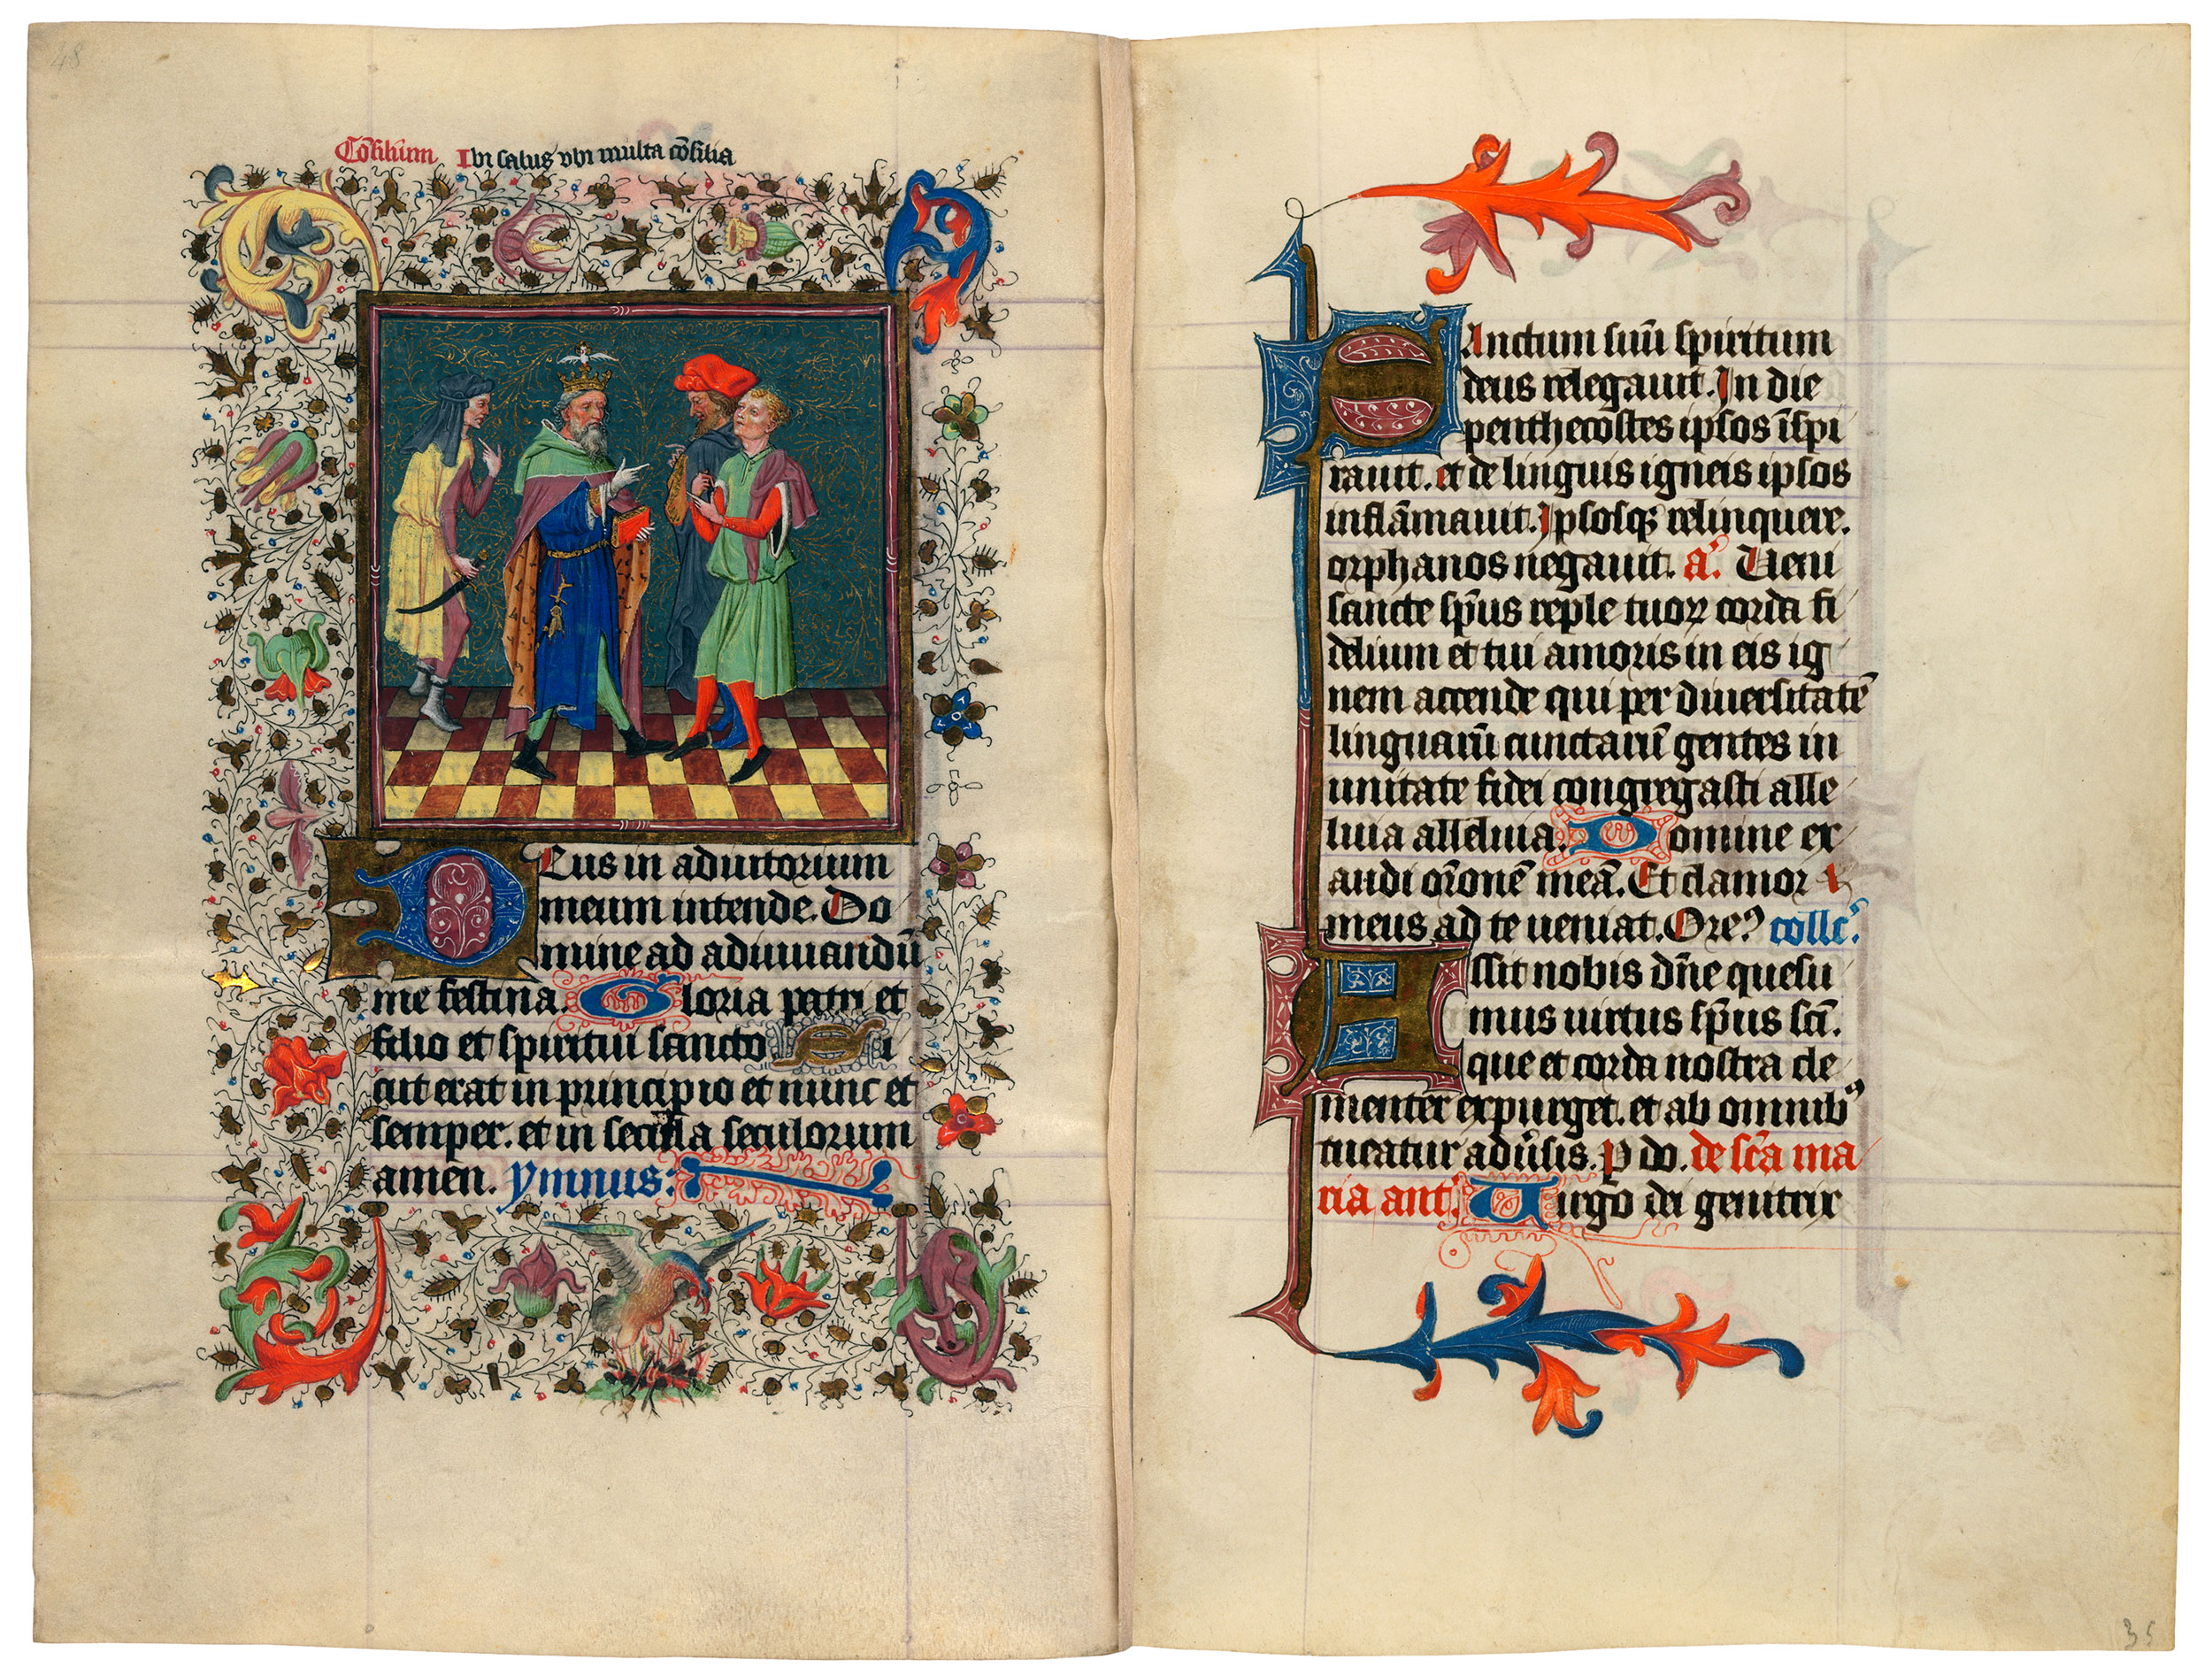 48
Cōsilium Ibi salus vbi multa cōsilia
Deus in adiutorium
meum intende. Do
mine ad adiuuandū
me festina. Gloria patri et
filio et spiritui sancto Si
cut erat in principio et nunc et
semper. et in secula seculorum
amen. ymnus:
SAnctum suū spiritum
deus relegauit. In die
penthecostes ipsos īspi
rauit. et de linguis igneis ipsos
inflāmauit. Ipsosqꝫ relinquere.
orphanos negauit. aͬ. Ueni
sancte sp̄us reple tuoꝝ corda fi
delium et tui amoris in eis ig
nem accende qui per diuersitatē
linguarū cunctarū gentes in
unitate fidei congregasti alle
luia alleluia. Domine ex
audi or̄onē meā. Et clamor
meus ad te ueniat. Oreꝰ collcͬ.
ASsit nobis dn̄e quesu
mus uirtus sp̄us scī.
que et corda nostra cle
menter expurget. et ab omnibꝰ
tueatur adūsis. p do. de sc̄a ma
ria antͬ. Uirgo dei genitrix
35